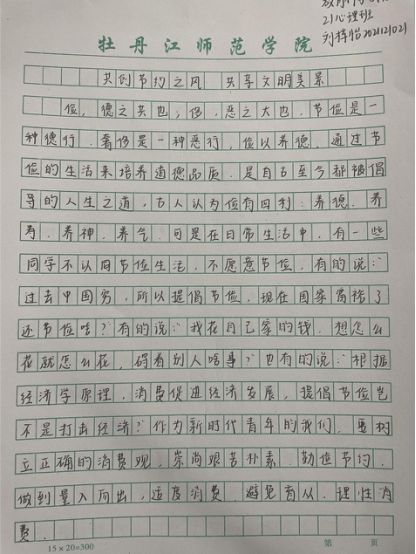 教育科学
21心理班
刘梓怡2021121021
牡丹江师范学院
共创节约之风 共享文明美景
俭,德之共也;侈,恶之大也。节俭是一
种德行,奢侈是一种恶行,俭以养德,通过节
俭的生活来培养道德品质,是自古至今都被倡
导的人生之道,古人认为俭有四利:养德、养
寿、养神、养气。可是在日常生活中,有一些
同学不认同节俭生活,不愿意节俭,有的说:“
过去中国穷,所以提倡节俭,现在国家富裕了
还节俭啥?”有的说:“我花自己家的钱,想怎么
花就怎么花,碍着别人啥事?”也有的说:“根据
经济学原理,消费促进经济发展,提倡节俭岂
不是打击经济?”作为新时代青年的我们,要树
立正确的消费观,崇尚艰苦朴素、勤俭节约,
做到量入而出,适度消费,避免盲从,理性消
费。
15×20=300 第 页